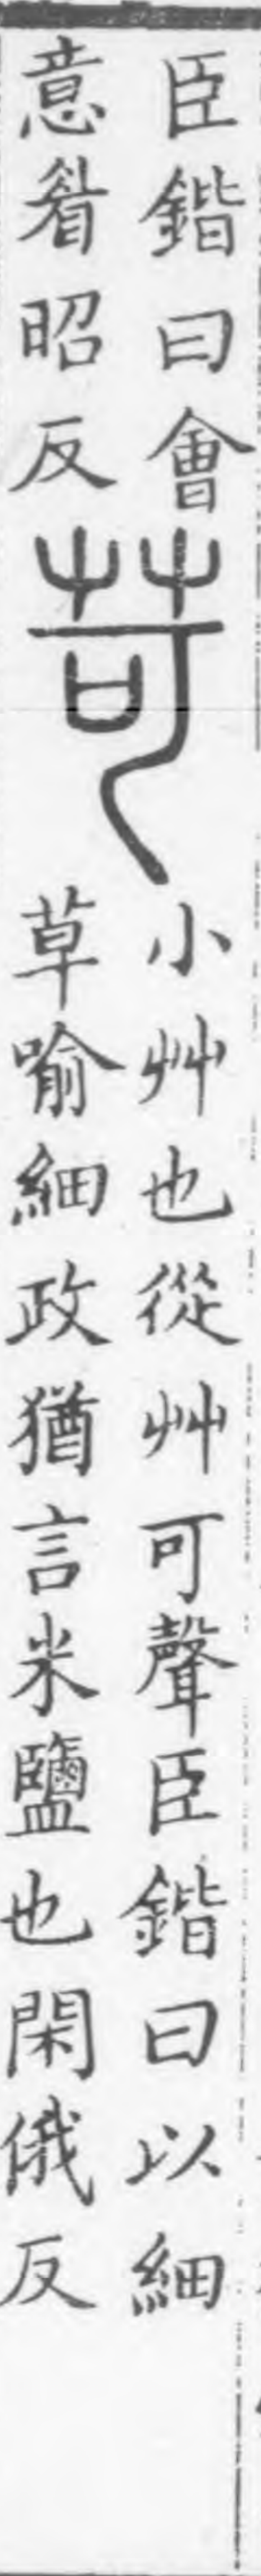 臣鍇曰會
意㸔昭反
苛
小艸也從艸可聲臣鍇曰以細
草喻細政猶言米鹽也閑俄反